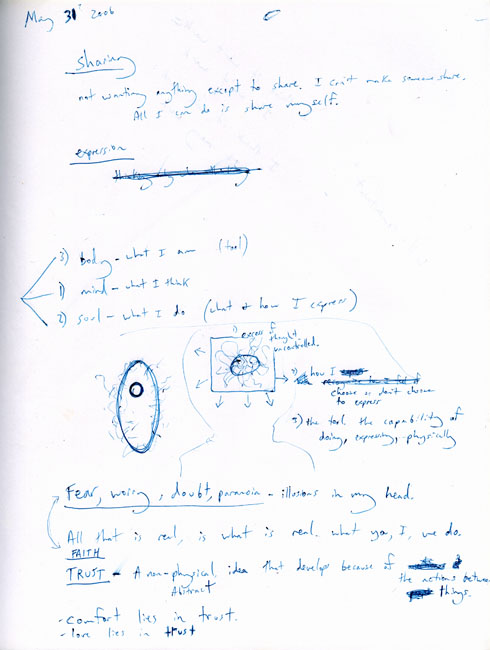 May 31 2006
sharing
not wanting anything except to share. I can't make someone share.
All I can do is share myself.
expression
3) body - what I am (tool)
1) mind - what I think
2) soul - what I do (what & how I express)
1) excess of
thought
uncontrolled.
2) how I
choose or don't choose
to express
3) the tool. the capability of
doing, expressing, physically
Fear, worry, doubt, paranoia - illusions in my head.
All that is real, is what is real. what you, I, we do.
FAITH
TRUST - A non-physical, idea that develops because of
Abstract
the actions between
things.
- comfort lies in trust.
- love lies in trust